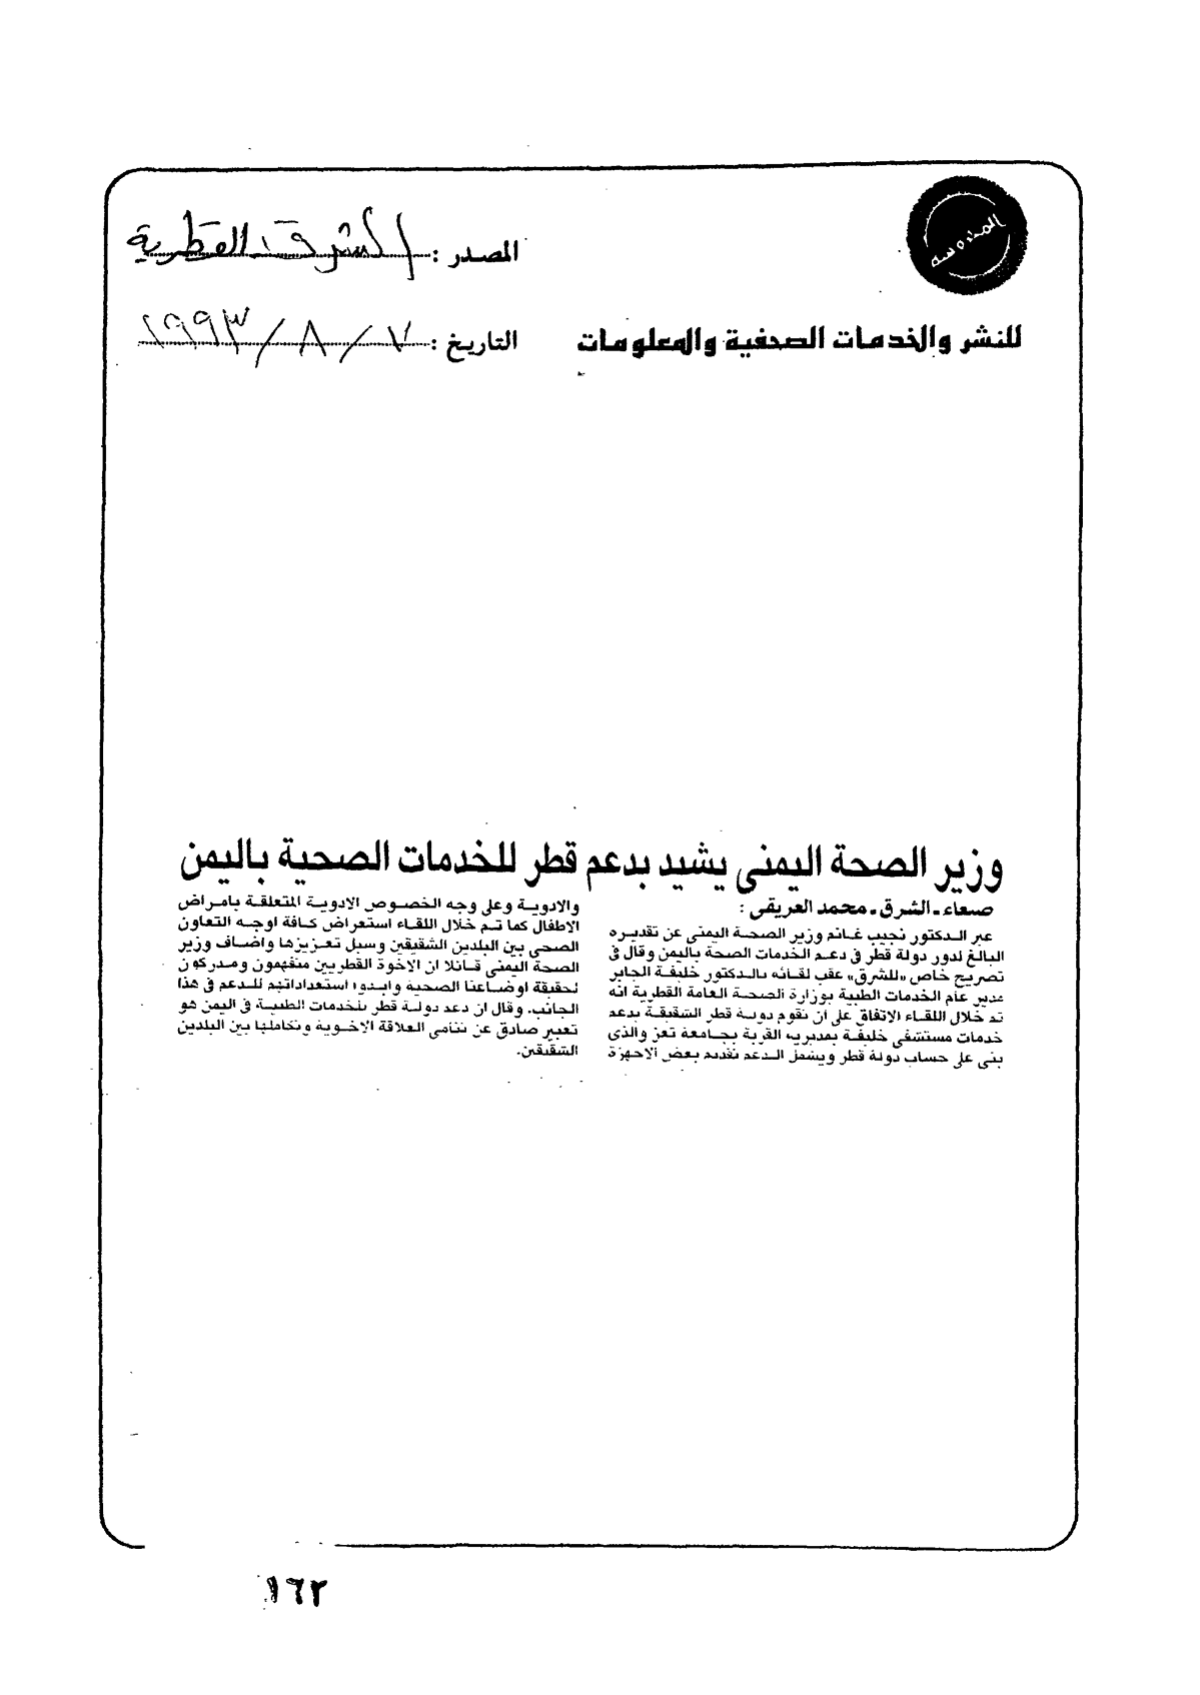 المصدر : الشرق القطرية
للنشر والخدمات الصحفية والمعلومات
التاريخ : ٧ / ٨ / ١٩٩٣
وزير الصحة اليمنى يشيد بدعم قطر للخدمات الصحية باليمن
صنعاء ـ الشرق ـ محمد العريقى :
عبر الدكتور نجيب غانم وزير الصحة اليمنى عن تقديره
البالغ لدور دولة قطر فى دعم الخدمات الصحة باليمن وقال فى
تصريح خاص «للشرق» عقب لقائه بالدكتور خليفة الجابر
مدير عام الخدمات الطبية بوزارة الصحة العامة القطرية انه
تم خلال اللقاء الاتفاق على ان تقوم دولة قطر الشقيقة بدعم
خدمات مستشفى خليفة بمديرية التربة بجامعة تعز والذى
بنى على حساب دولة قطر ويشمل الدعم تقديم بعض الاجهزة
والادوية وعلى وجه الخصوص الادوية المتعلقة بامراض
الاطفال كما تم خلال اللقاء استعراض كافة اوجه التعاون
الصحى بين البلدين الشقيقين وسبل تعزيزها واضاف وزير
الصحة اليمنى قائلا ان الاخوة القطريين متفهمون ومدركون
لحقيقة اوضاعنا الصحية وابدوا استعداداتهم للدعم فى هذا
الجانب. وقال ان دعم دولة قطر للخدمات الطبية فى اليمن هو
تعبير صادق عن تنامى العلاقة الاخوية وتكاملها بين البلدين
الشقيقين.
١٦٢